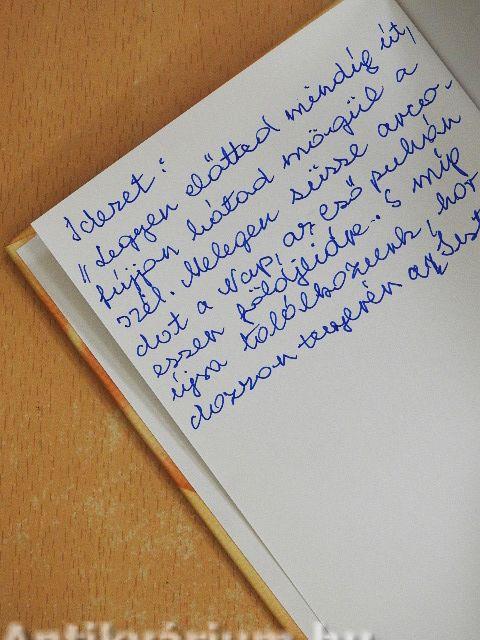 Idézet:
"Legyen előtted mindíg út,
fújjon hátad mögül a
szél. Melegen süsse arco-
dat a Nap, az eső puhán
essen földjeidre. S míg
újra találkozunk, hor
dozzon tenyerén az Iste
Antikvárium.hu